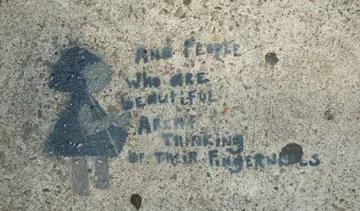 And People
who are
beautiful
Aren't
thinking
of their fingernails